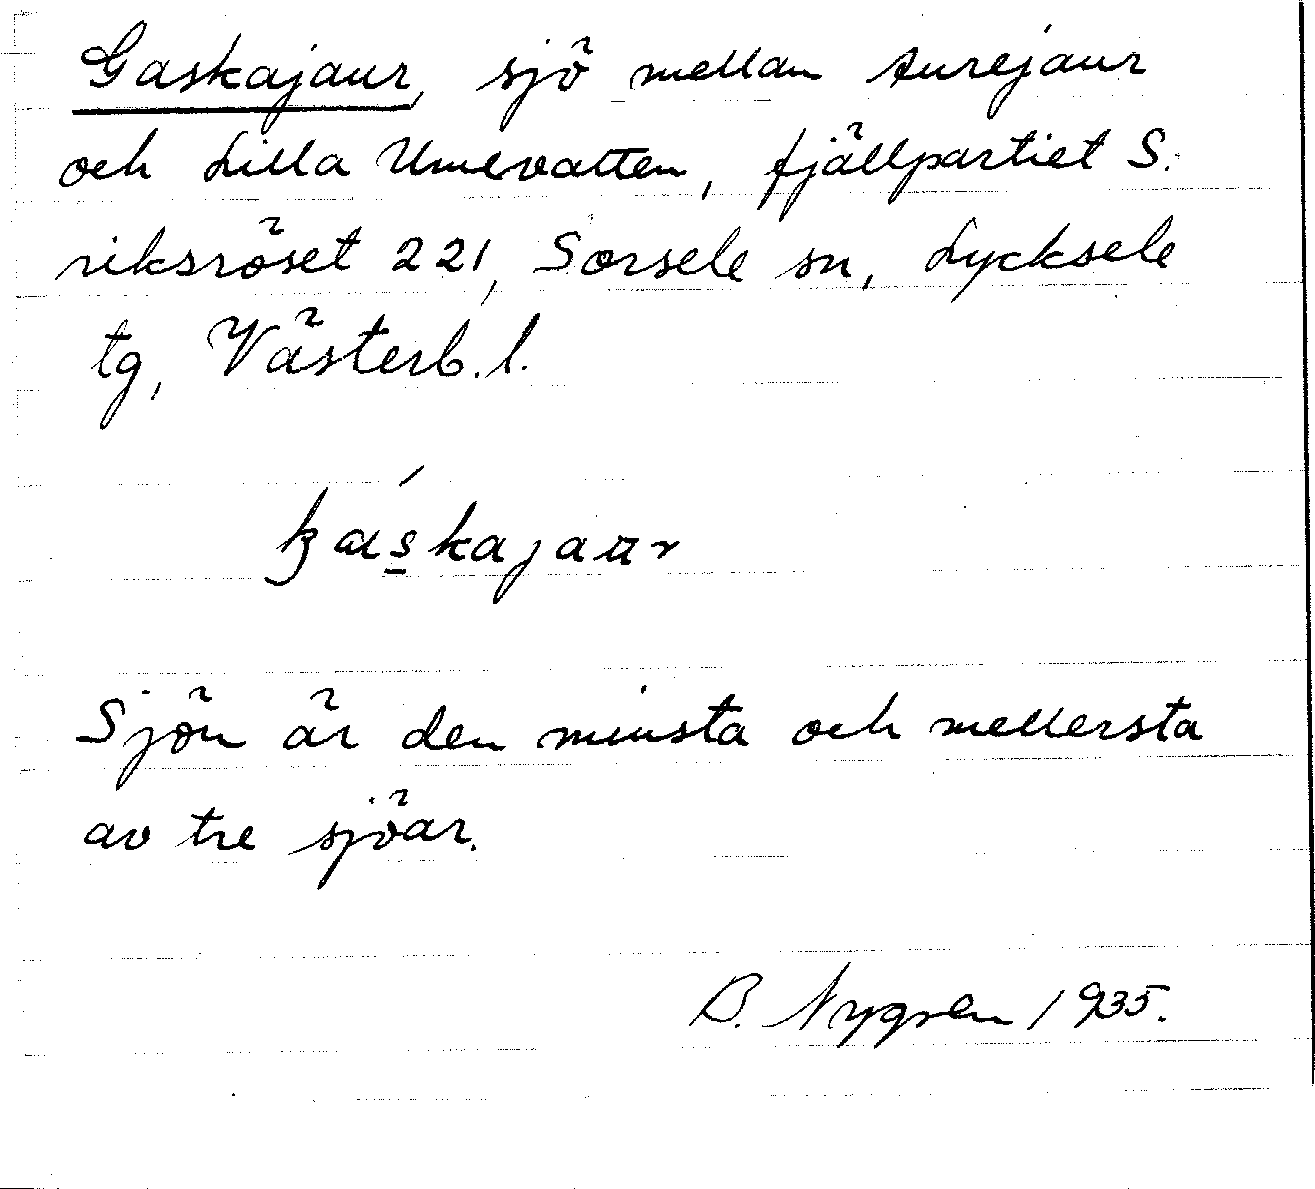 Gaskajaur, sjö mellan Aurejaur
och Lilla Umevatten, fjällpartiet S.
riksröset 221, Sorsele sn, Lycksele
tg, Västerb. l.
Sjön är den minsta och mellersta
av tre sjöar.
B. Nygren 1935.